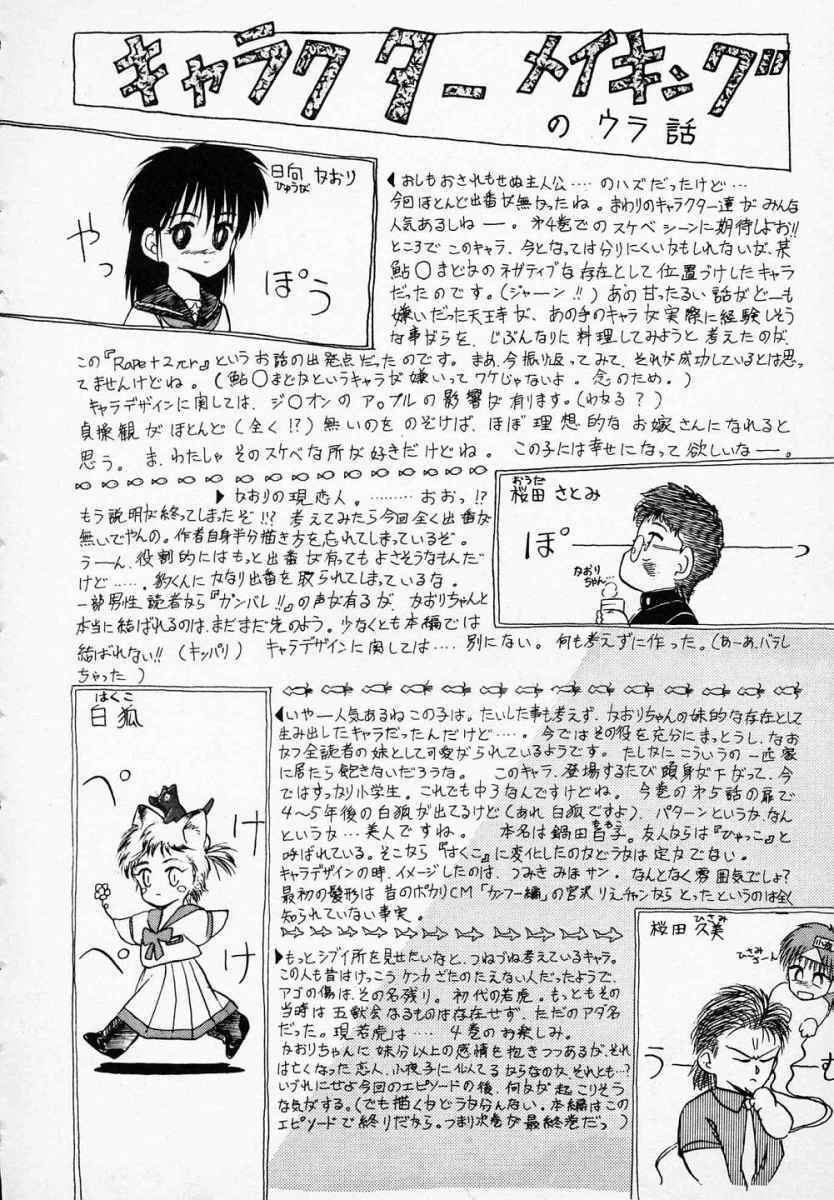 キャラクターメイキング
のウラ話
日向 かおり
ひゅうが
やっ
ぽう
◀おしもおされもせぬ主人公……のハズだったけど…
今回ほとんど出番が無かったね。まわりのキャラクター達がみんな
人気あるしねー。第4巻でのスケベシーンに期待しよお!!
ところでこのキャラ、今となっては分りにくいかもしれないが、某
鮎〇まどかのネガティブな存在として位置づけしたキャラ
だったのです。(ジャーン!!)あの甘ったるい話がどーも
嫌いだった天王寺が、あの手のキャラが実際に経験しそう
な事がらを、じぶんなりに料理してみようと考えたのが、
この『Rape+2πr』というお話の出発点だったのです。まあ、今振り返ってみて、それが成功しているとは思っ
てませんけどね。(鮎〇まどかというキャラが嫌いってワケじゃないよ。念のため。)
キャラデザインに関しては、ジ〇オンのア〇プルの影響が有ります。(わかる?)
貞操観がほとんど(全く!?)無いのをのぞけば、ほぼ理想的なお嫁さんになれると
思う。ま、わたしゃそのスケベな所が好きだけどね。この子には幸せになって欲しいなー。
おうた
桜田 さとみ
ぽ
ー
っ
かおり
ちゃん…
▶かおりの現恋人。………おおっ!?
もう説明が終ってしまったぞ!!? 考えてみたら今回全く出番が
無いでやんの。作者自身半分描き方を忘れてしまっているぞ。
うーん、役割的にはもっと出番が有ってもよさそうなもんだ
けど……、豹くんにかなり出番を取られてしまっているな。
一部男性読者から『ガンバレ!!』の声が有るが、かおりちゃんと
本当に結ばれるのは、まだまだ先のよう。少なくとも本編では
結ばれない!!(キッパリ) キャラデザインに関しては……別にない。何も考えずに作った。(あーあ、バラし
ちゃった)
はくこ
白狐
ぺ
け
ぺ
け
◀いやー人気あるねこの子は。たいした事も考えず、かおりちゃんの妹的な存在として
生み出したキャラだったんだけど……。今ではその役を充分にまっとうし、なお
かつ全読者の妹として可愛がられているようです。たしかにこういうの一匹家
に居たら飽きないだろうな。 このキャラ、登場するたび頭身が下がって、今
ではすっかり小学生。これでも中3なんですけどね。今巻の第5話の扉で
4〜5年後の白狐が出てるけど(あれ白狐ですよ)、パターンというか、なん
というか…美人ですね。 本名は鍋田百子。友人からは『ひゃっこ』と
ももこ
呼ばれている。そこから『はくこ』に変化したのかどうかは定かでない。
キャラデザインの時、イメージしたのは、うみきみほサン。なんとなく雰囲気でしょ?
最初の髪形は昔のポカリCM「カンフー編」の宮沢りえチャンからとったというのは全く
知られていない事実。
ひさみ
桜田 久美
ひさみ
うー
む
◀もっとシブイ所を見せたいなと、つねづね考えているキャラ。
この人も昔はけっこうケンカざたのたえない人だったようで、
アゴの傷は、その名残り。初代の若虎。もっともその
当時は五獣会なるものは存在せず、ただのアダ名
だった。現若虎は……4巻のお楽しみ。
かおりちゃんに妹分以上の感情を抱きつつあるが、それ
は亡くなった恋人、小夜子に似てるからなのか、それとも…?
いづれにせよ今回のエピソードの後、何かが起こりそう
な気がする。(でも描くかどうか分んない。本編はこの
エピソードで終りだから。つまり次巻が最終巻だっ)